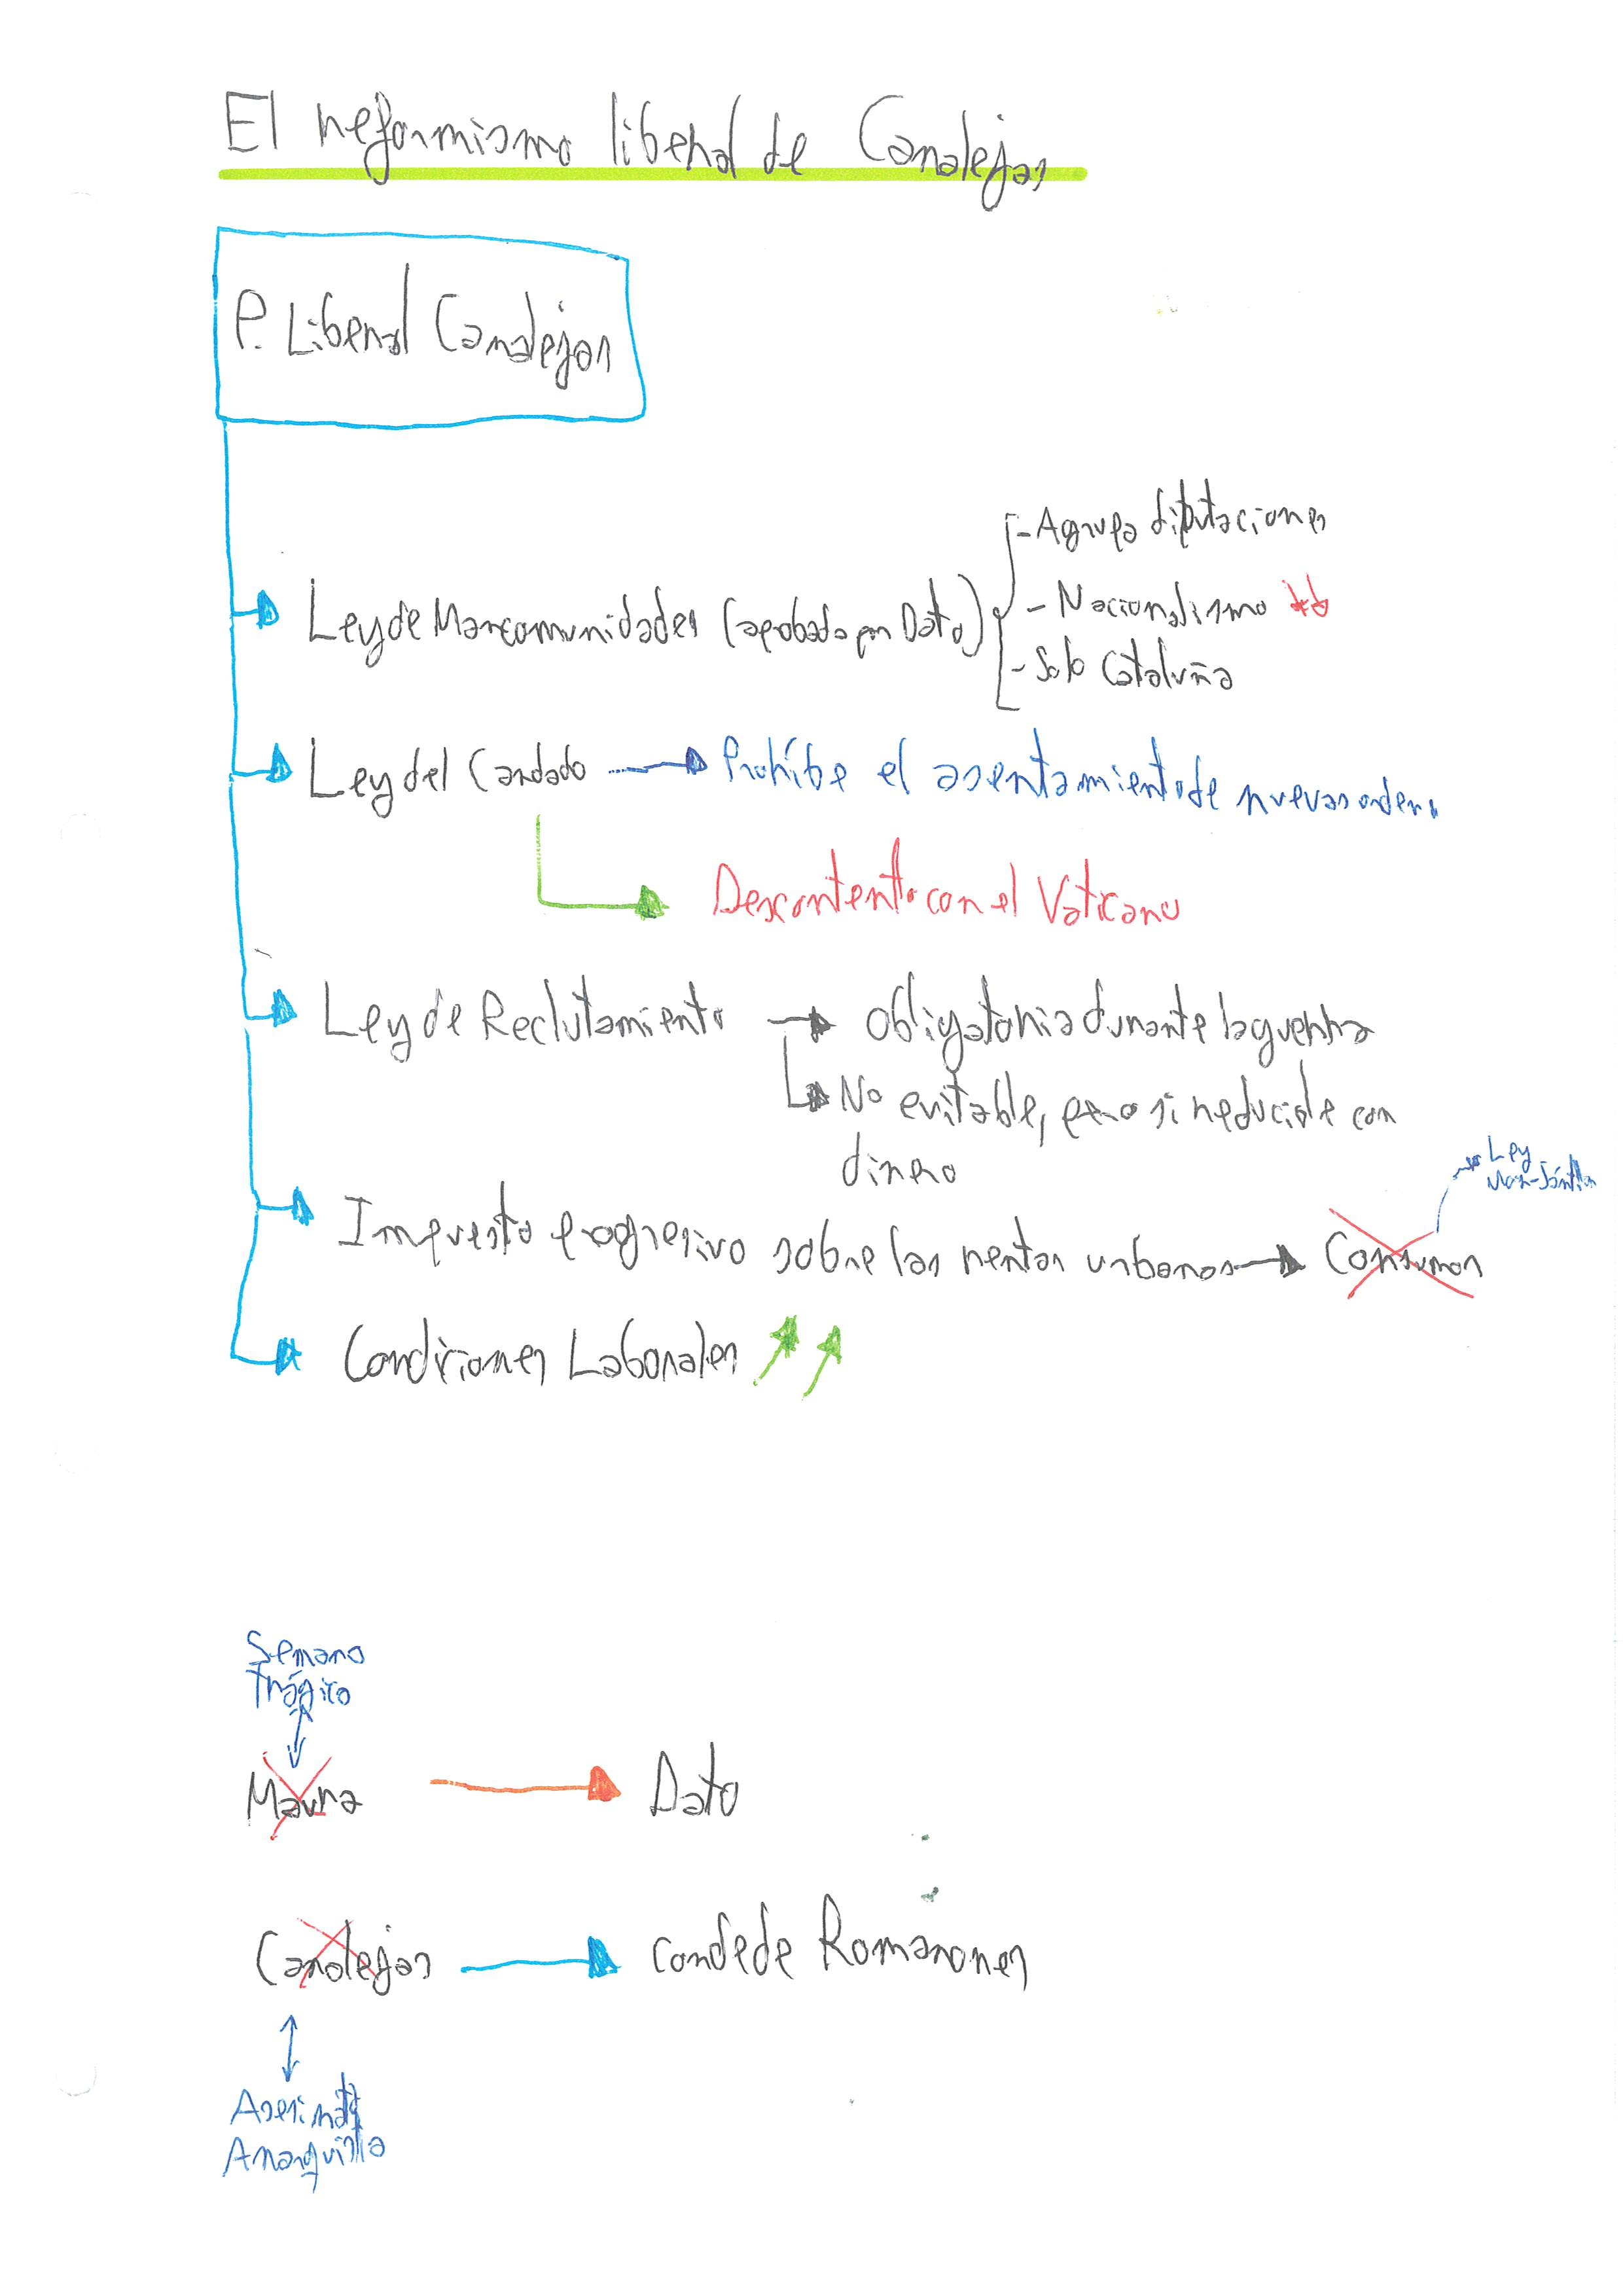 El reformismo liberal de Canalejas
P. Liberal Canalejas
- Agrupa diputaciones
Ley de Mancomunidades (aprobada por Dato) - Nacionalismo
- Solo Cataluña
Ley del Candado Prohíbe el asentamiento de nuevas ordens
Descontento con el Vaticano
Ley de Reclutamiento Obligatoria durante la guerra
No evitable, pero si reducible con
dinero
Ley
Impuesto progresivo sobre las rentas urbanas Consumos
Condiciones Laborales
Semana
Trágica
Maura Dato
Canalejas Conde de Romanones
Asesinato
Anarquista